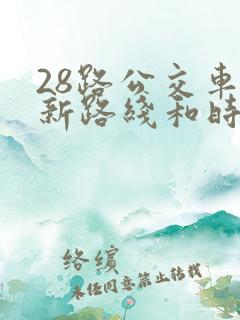 28路公交车
新路线和时
络缤
未经同意禁止转载